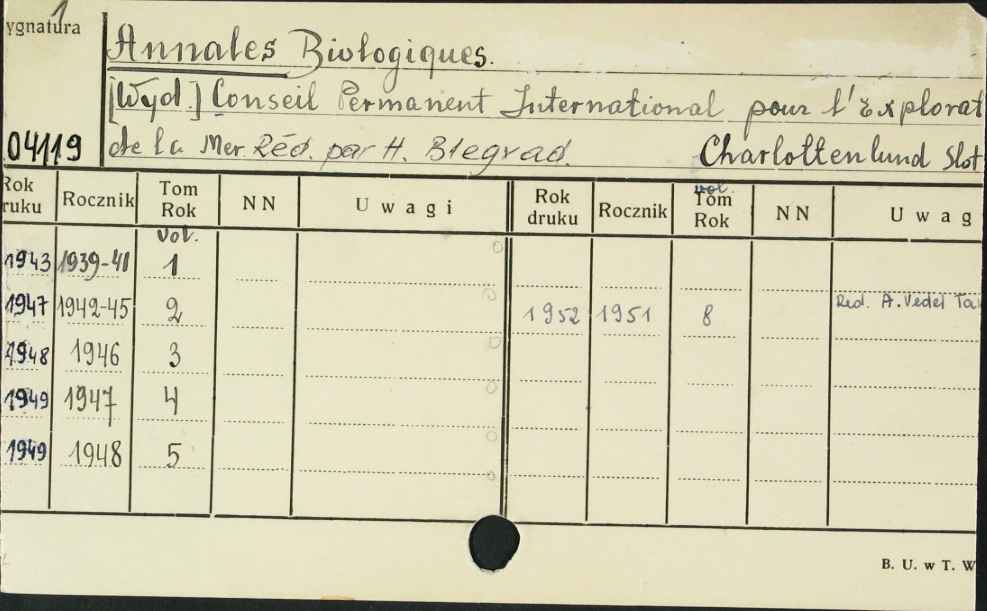 ygnatura 1
Annales Biologiques.
[Wyd.] Conseil Permanent International pour l'Explorat
04119 de la Mer. Réd. par H. Blegvad. Charlottenlund Slot
Rok ruku Rocznik Tom Rok NN Uwagi Rok druku Rocznik vol. Tom Rok NN Uwag
Vol.
1943 1939-41 1
1947 1942-45 2 1952 1951 8 Red. A. Vedel Ta
1948 1946 3
1949 1947 4
1949 1948 5
B. U. w T. W